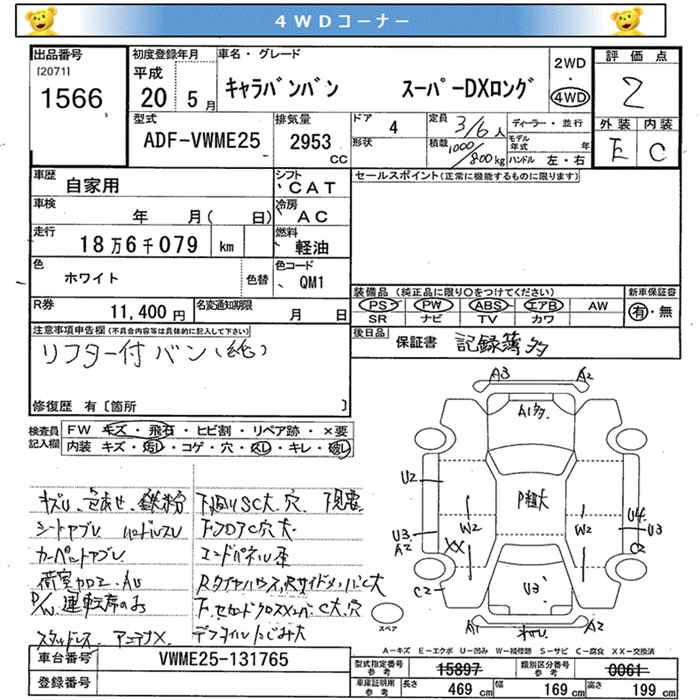 4WDコーナー
出品番号
[2071]
1566
初度登録年月
平成
20 5月
車名・グレード
キャラバンバン スーパーDXロング
2WD
・
4WD
評価点
2
外装 内装
E C
型式
ADF-VWME25
排気量
2953
CC
ドア
4
形状
定員
3/6人
積載
1000/800kg
ディーラー・並行
モデル年式 年
ハンドル 左・右
車歴
自家用
シフト
CAT
セールスポイント(正常に機能するものに限ります)
車検
年 月( 日)
冷房
AC
走行
18万6千079 km
燃料
軽油
色
ホワイト
色替
色コード
QM1
R券
11,400円
名変通知期限
月 日
装備品(純正品に限り○をつけてください)
PS PW ABS エアB AW
SR ナビ TV カワ
新車保証書
有・無
後日品
保証書 記録簿多
注意事項申告欄(不具合内容等は具体的に記入して下さい)
リフター付バン(純)
修復歴 有[箇所 ]
検査員記入欄
FW キズ・飛石・ヒビ割・リペア跡・×要
内装 キズ・汚レ・コゲ・穴・スレ・キレ・破レ
キズU、色あせ、鉄粉
下廻りSC大、穴
シートヤブレ ハンドルスレ
下フロアC穴大
カーペットヤブレ
エンドパネル
荷室カロエ・AU
P/W運転席のみ
スタッドレス アンテナX
A3
A2
A1多
U2
P粗大
U3
A2
W2
W2
U4
U3
XX
C2
C2
U3
A1
A2
スペア
A-キズ E-エクボ U-凹み W-補修跡 S-サビ C-腐食 XX-交換済
車台番号
VWME25-131765
登録番号
型式指定番号
参考
15897
類別区分番号
参考
0061
車庫証明用
参考
長さ 469cm
幅 169cm
高さ 199cm